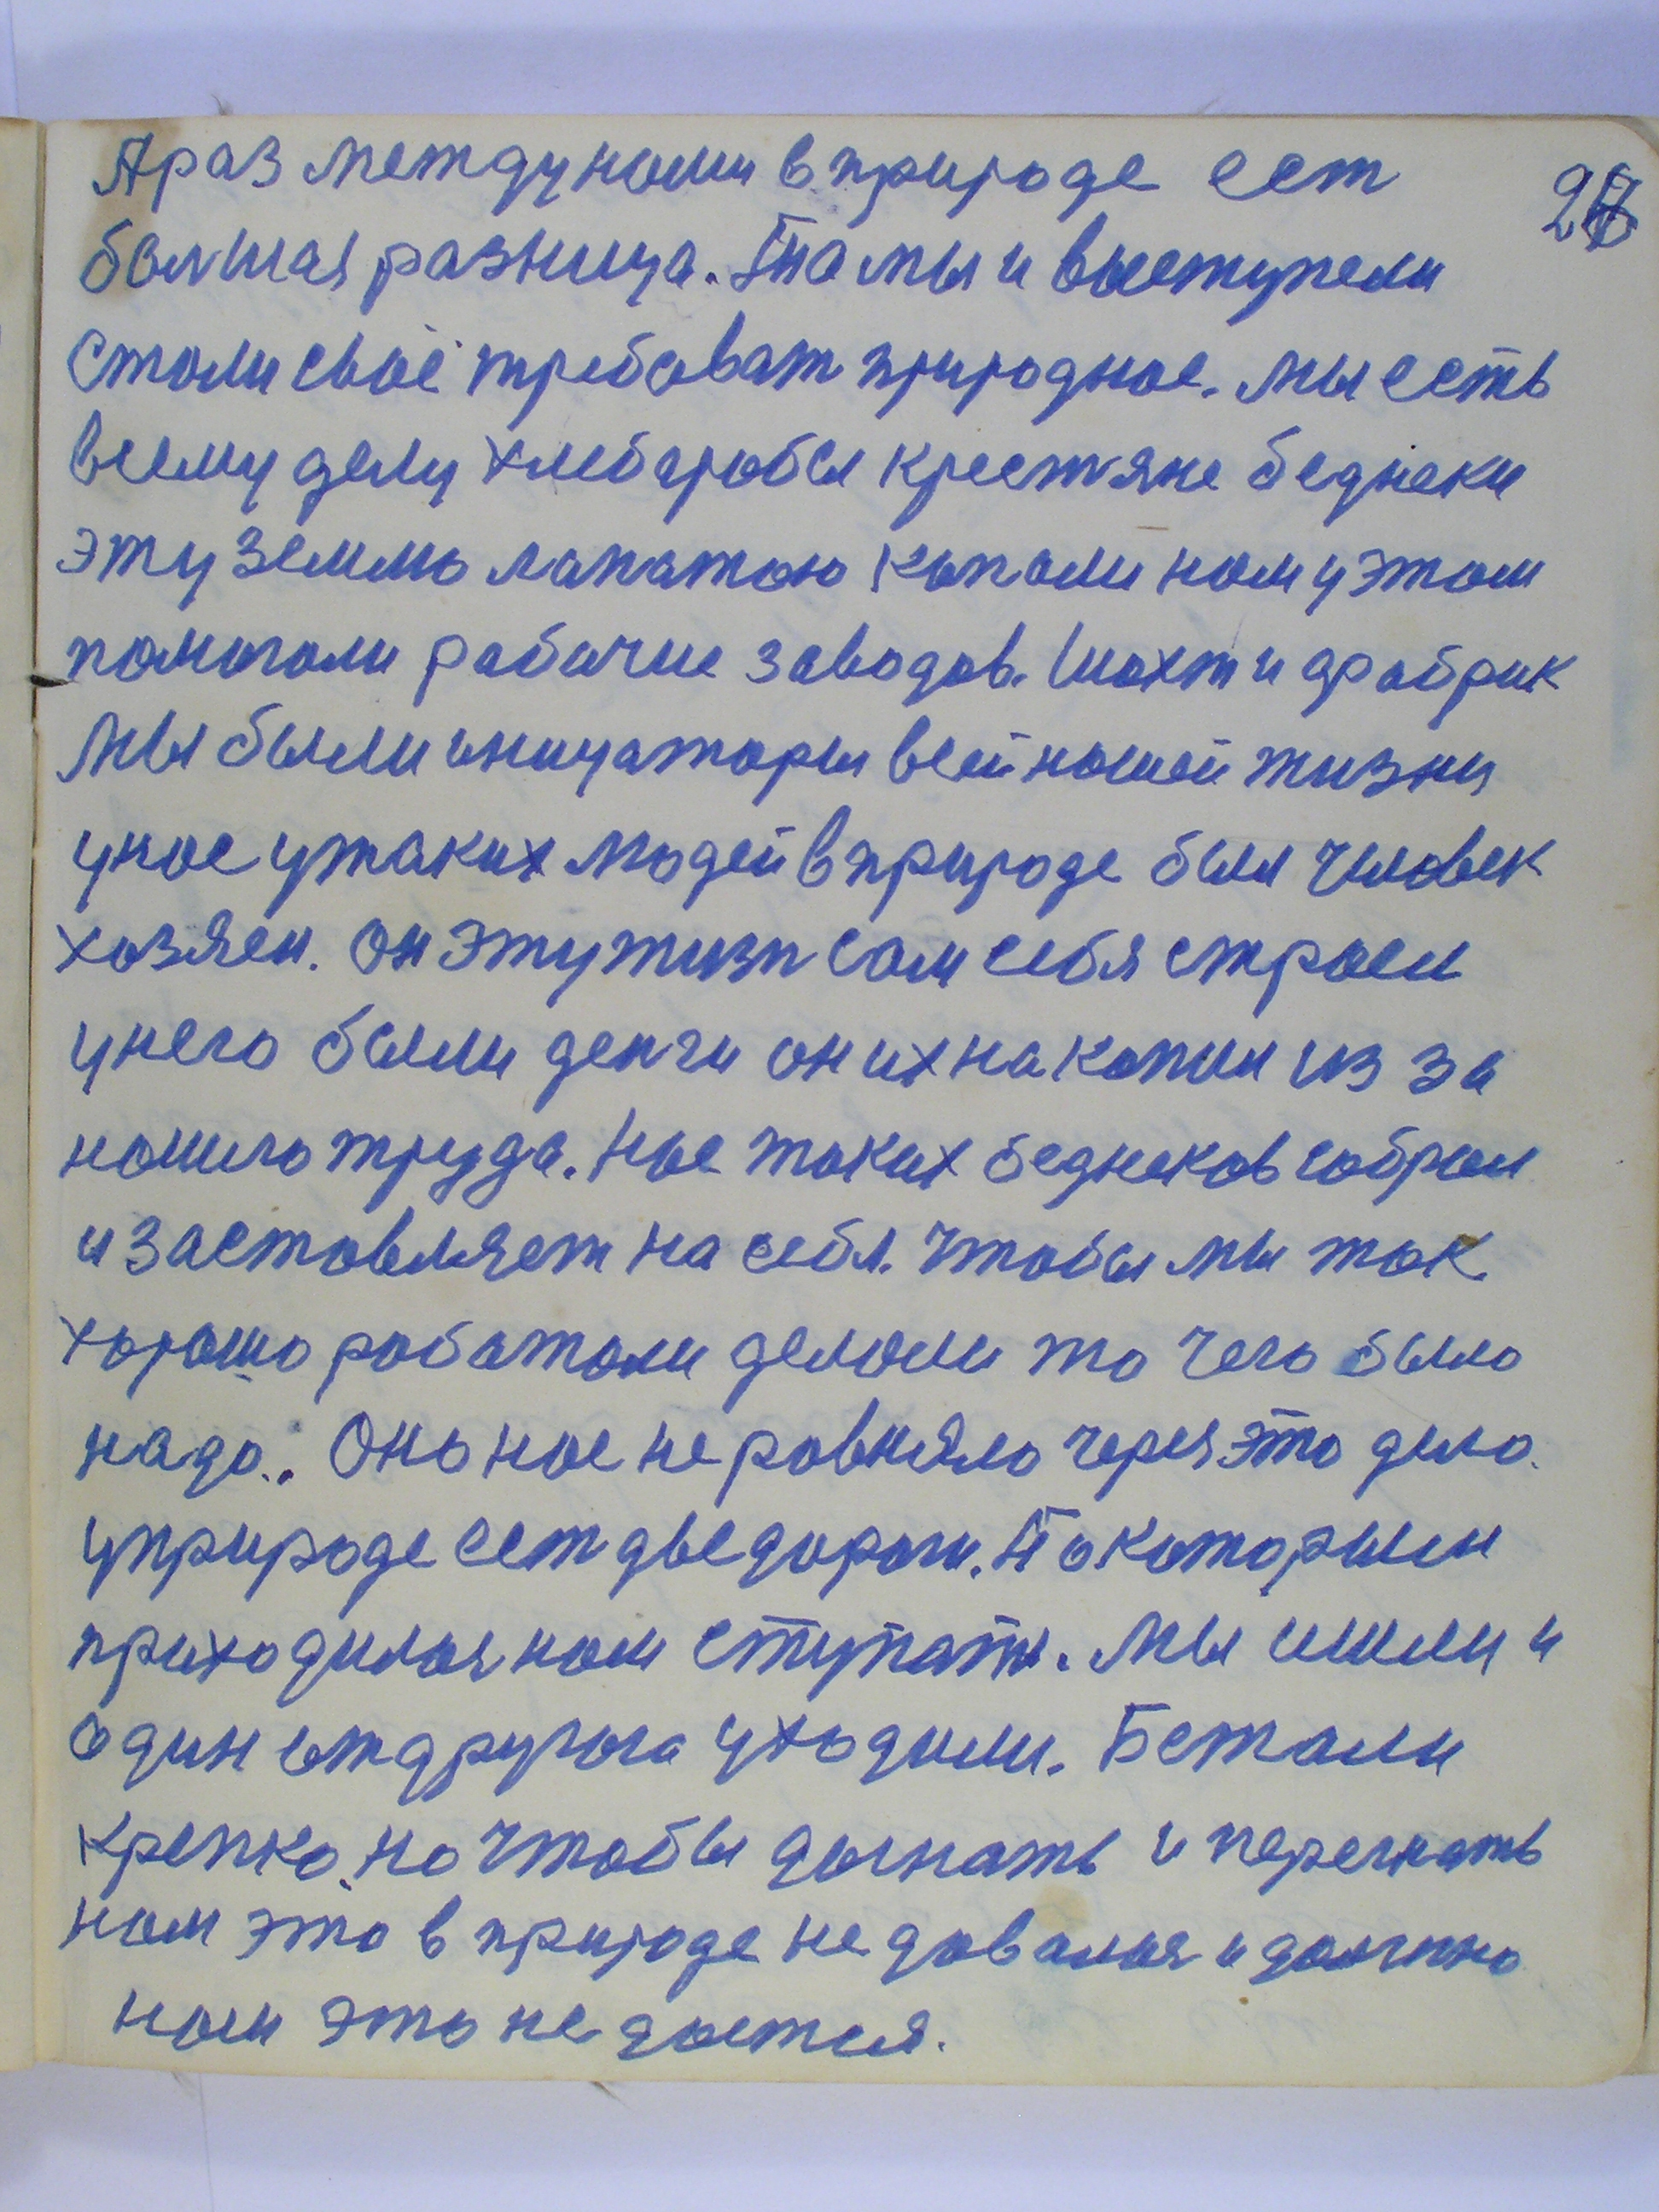 А раз между нами в природе ест
болшая разница. То мы и выступели
стали своё требоват природное. мы есть
всему делу хлебаробы крестяне беднеки
эту землю лапатою копали нам у этом
помогали рабочие заводов. шахт и фабрик
мы были иницаторы всей нашей жизни
у нас у таких людей в природе был человек
хозяен. он эту жизн сам себя строел
у него были денги он их накопил из за
нашего труда. нас таких беднеков собрал
и заставляет на себя. чтобы мы так
хорошо работали делали то чего было
надо. Оно нас не ровняло через это дело.
у природе ест две дороги. По которыем
приходилося нам ступать. мы ишли и
один от другога уходили. Бежали
крепко. но чтобы догнать и перегнать
нам это в природе не давалося и должно
нам это не дается.